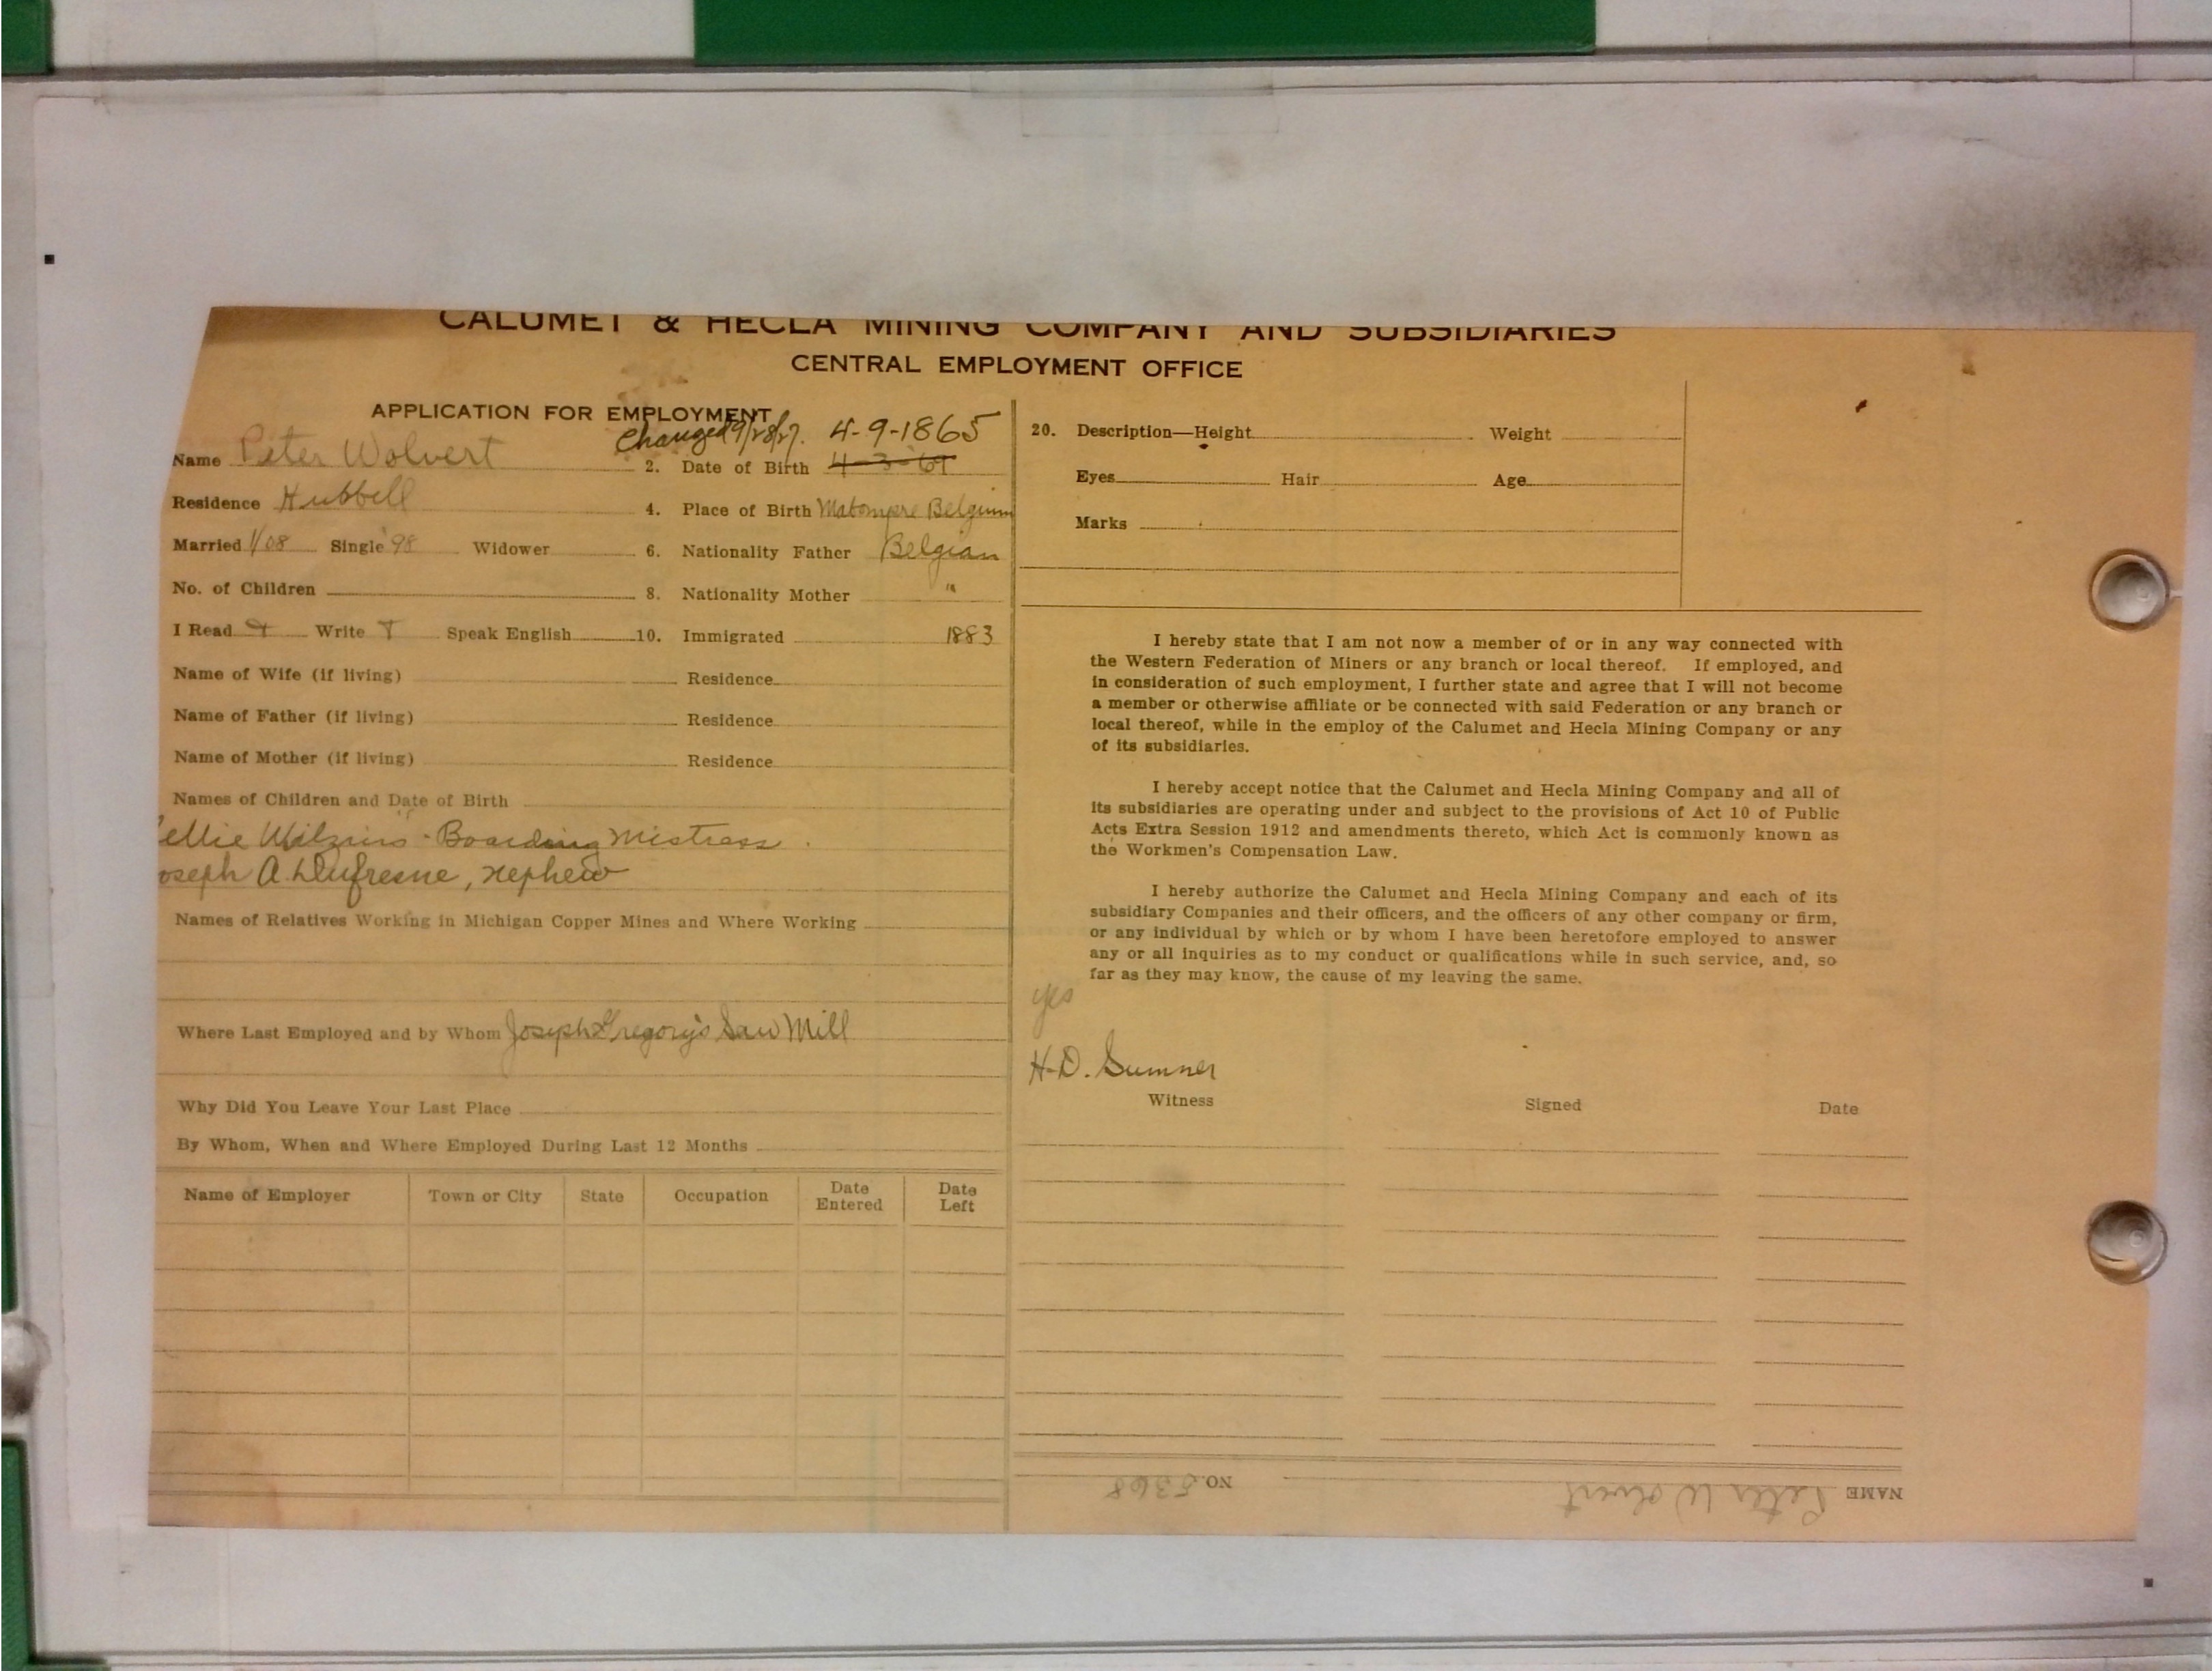 CALUMET & HECLA MINING COMPANY AND SUBSIDIARIES
CENTRAL EMPLOYMENT OFFICE
APPLICATION FOR EMPLOYMENT
Changed 9/28/27. 4-9-1865
Name Peter Wolvert 2. Date of Birth
Residence Hubbell 4. Place of Birth Belgium
Married 1/08 Single '98 Widower 6. Nationality Father Belgian
No. of Children 8. Nationality Mother "
I Read Write Speak English 10. Immigrated 1883
Name of Wife (if living) Residence
Name of Father (if living) Residence
Name of Mother (if living) Residence
Names of Children and Date of Birth
ellie - Boarding Mistress
oseph A. Dufresne, nephew
Names of Relatives Working in Michigan Copper Mines and Where Working
Where Last Employed and by Whom Joseph Gregory's Saw Mill
Why Did You Leave Your Last Place
By Whom, When and Where Employed During Last 12 Months
Name of Employer Town or City State Occupation Date Entered Date Left
20. Description—Height Weight
Eyes Hair Age
Marks
I hereby state that I am not now a member of or in any way connected with
the Western Federation of Miners or any branch or local thereof. If employed, and
in consideration of such employment, I further state and agree that I will not become
a member or otherwise affiliate or be connected with said Federation or any branch or
local thereof, while in the employ of the Calumet and Hecla Mining Company or any
of its subsidiaries.
I hereby accept notice that the Calumet and Hecla Mining Company and all of
its subsidiaries are operating under and subject to the provisions of Act 10 of Public
Acts Extra Session 1912 and amendments thereto, which Act is commonly known as
the Workmen's Compensation Law.
I hereby authorize the Calumet and Hecla Mining Company and each of its
subsidiary Companies and their officers, and the officers of any other company or firm,
or any individual by which or by whom I have been heretofore employed to answer
any or all inquiries as to my conduct or qualifications while in such service, and, so
far as they may know, the cause of my leaving the same.
yes
H.D. Sumner
Witness Signed Date
NAME Peter Wolvert NO. 5368